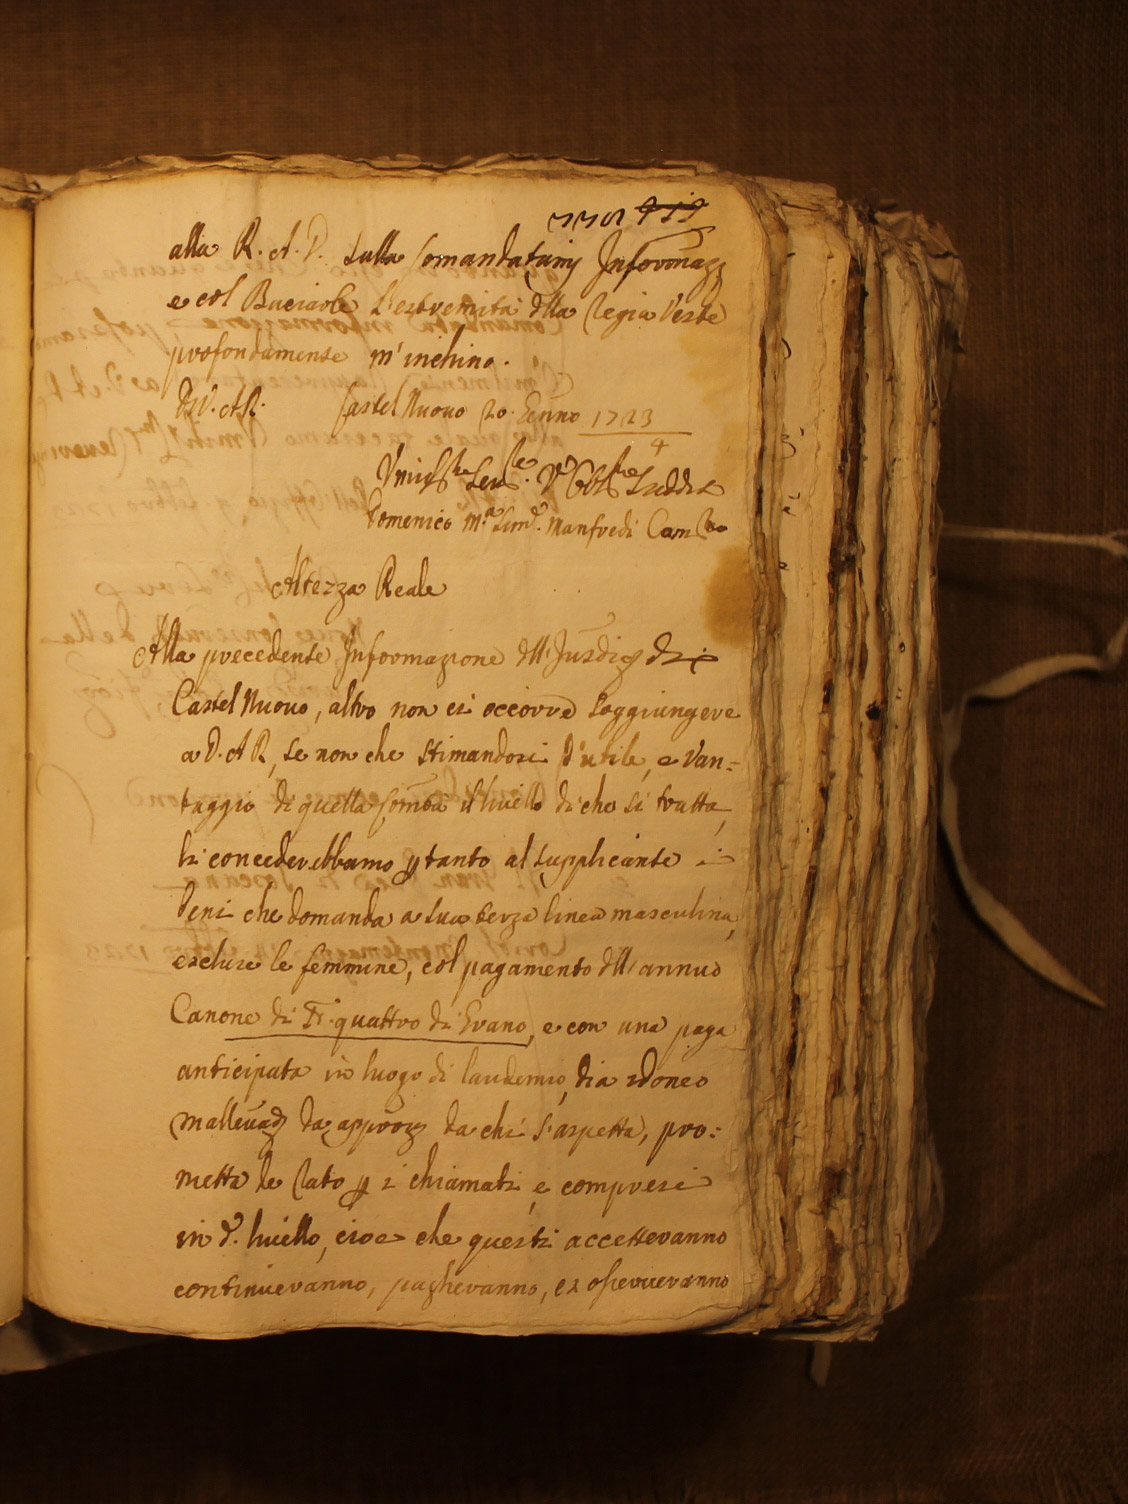 alla R. A. V. sulla Comandatami Informaz
e col Baciarle l'estremità dlla Regia Veste
profondamente m'inchino.
D V. A R. Castel Nuovo 20. Genno 1723/4
Domenico M.ª Manfredi
Altezza Reale
Alla precedente Informazione dll' di
Castel Nuovo, altro non ci occorre soggiungere
a V. A R, se non che stimandosi d'utile, e van=
taggio di quella Comtà il livello di che si tratta,
si concederebbamo ptanto al supplicante i
beni che domanda a sua terza linea masculina,
escluse le femmine, col pagamento dll' annuo
Canone di quattro di Grano, e con una paga
anticipata in luogo di laudemio, dia idoneo
mallevad da approv da chi s'aspetta, pro:
metta de Rato p i chiamati, e compresi
in d.º livello, cioè che questi accetteranno
continueranno, pagheranno, et osserveranno